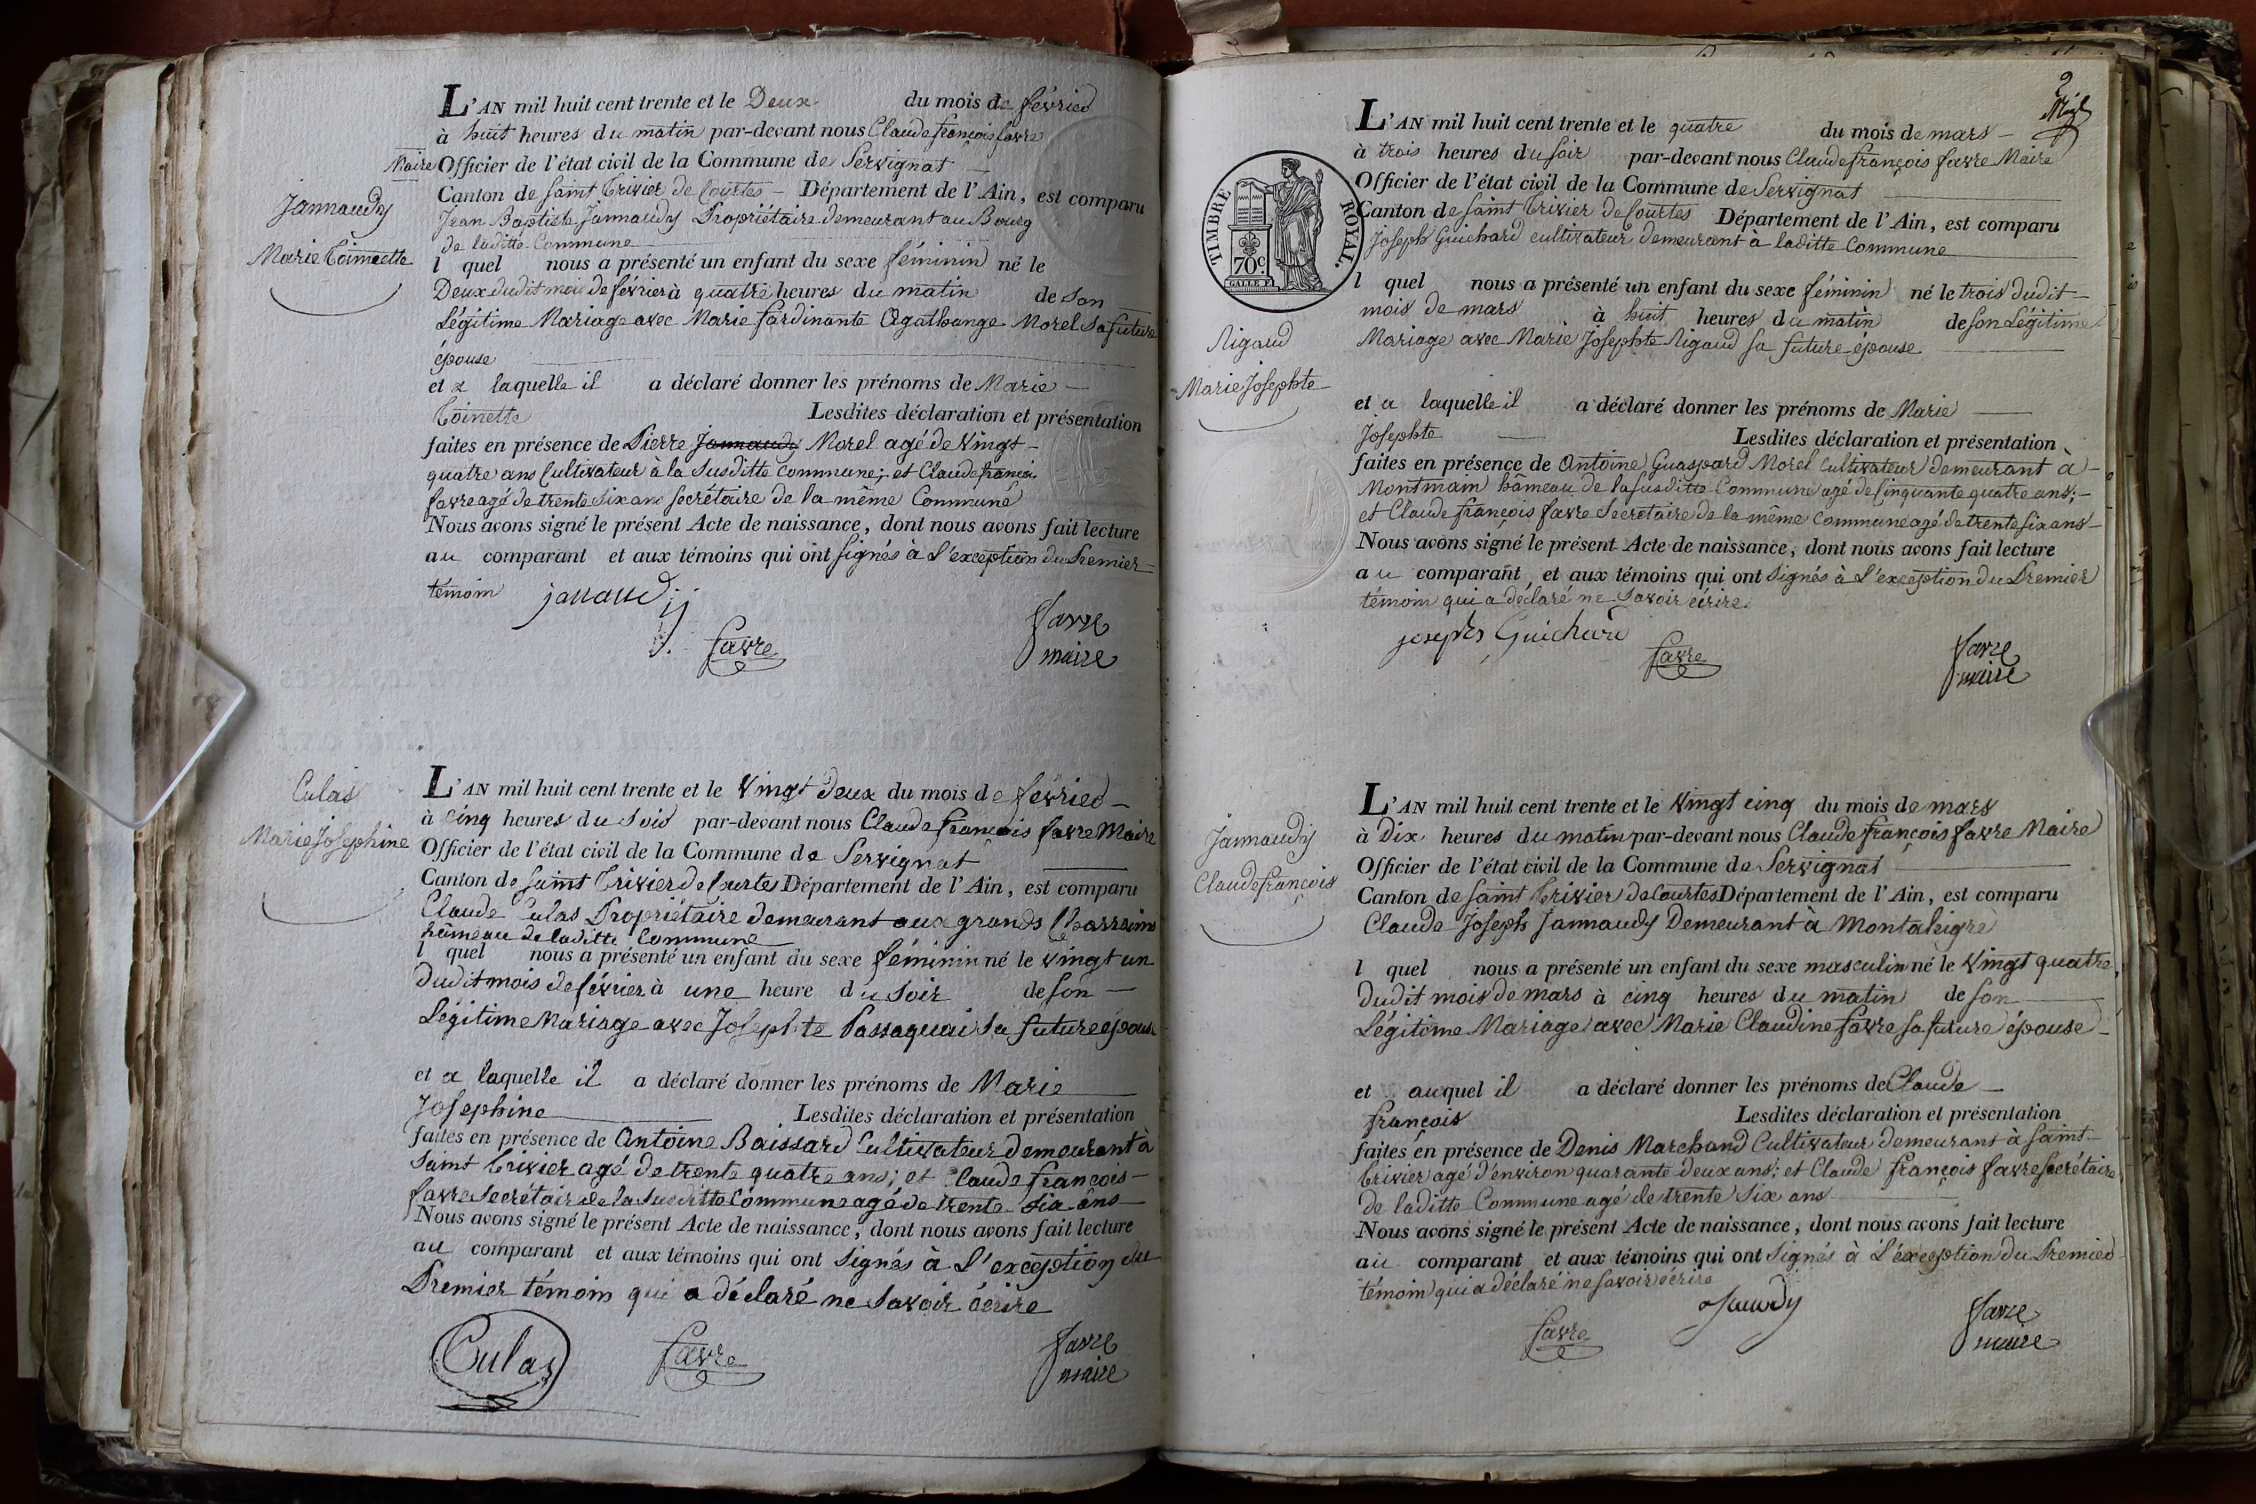 L'AN mil huit cent trente et le Deux du mois de février
à huit heures du matin par-devant nous Claude françois favre
Maire Officier de l'état civil de la Commune de Servignat
Canton de Saint Trivier de Courtes Département de l'Ain, est comparu
Jean Baptiste Jannaudy Propriétaire demeurant au Bourg
de laditte Commune
Jannaudy
Marie Toinette
l quel nous a présenté un enfant du sexe féminin né le
Deux dudit mois de février à quatre heures du matin de son
Légitime Mariage avec Marie fardinante Agathange Morel Sa future
épouse
et a laquelle il a déclaré donner les prénoms de Marie
Toinette Lesdites déclaration et présentation
faites en présence de Pierre Jannaudy Morel agé de Vingt
quatre ans Cultivateur à la Susditte Commune; et Claude françois
favre agé de trente six ans Secrétaire de la même Commune
Nous avons signé le présent Acte de naissance, dont nous avons fait lecture
au comparant et aux témoins qui ont Signés à L'exception du Premier
témoin
favre
favre
maire
Culas
Marie Josephine
L'AN mil huit cent trente et le Vingt Deux du mois de février
à cinq heures du Soir par-devant nous Claude François favre Maire
Officier de l'état civil de la Commune de Servignat
Canton de Saint Trivier de Courtes Département de l'Ain, est comparu
Claude Culas Propriétaire demeurant aux grands
hâmeau de laditte Commune
l quel nous a présenté un enfant du sexe féminin né le Vingt un
Dudit mois de février à une heure du Soir de son
Légitime Mariage avec Josephte Passaquai Sa future épouse
et a laquelle il a déclaré donner les prénoms de Marie
Josephine Lesdites déclaration et présentation
faites en présence de Antoine Boissard Cultivateur Demeurant à
Saint Trivier agé de trente quatre ans; et Claude françois
favre Secrétair de la Susditte Commune agé de trente Six ans
Nous avons signé le présent Acte de naissance, dont nous avons fait lecture
au comparant et aux témoins qui ont Signés à L'exception du
Premier témoin qui a déclaré ne Savoir écrire
Culas
favre
favre
maire
2
L'AN mil huit cent trente et le quatre du mois de mars
à trois heures du soir par-devant nous Claude françois favre Maire
Officier de l'état civil de la Commune de Servignat
Canton de Saint Trivier de Courtes Département de l'Ain, est comparu
Joseph Guichard cultivateur demeurant à laditte Commune
TIMBRE ROYAL.
70c.
l quel nous a présenté un enfant du sexe féminin né le trois dudit
mois de mars à huit heures du matin de son Légitime
Mariage avec Marie Josephte Rigaud sa future épouse
Rigaud
Marie Josephte
et a laquelle il a déclaré donner les prénoms de Marie
Josephte Lesdites déclaration et présentation
faites en présence de Antoine Guaspard Morel Cultivateur demeurant à
Montmain hâmeau de la Susditte Commune agé de Cinquante quatre ans;
et Claude françois favre Secretaire de la même Commune agé de trente six ans
Nous avons signé le présent Acte de naissance, dont nous avons fait lecture
au comparant et aux témoins qui ont Signés à L'exception du Premier
témoin qui a déclaré ne Savoir écrire.
joseph Guichard
favre
favre
maire
Jannaudy
Claude françois
L'AN mil huit cent trente et le Vingt cinq du mois de mars
à Dix heures du matin par-devant nous Claude françois favre Maire
Officier de l'état civil de la Commune de Servignat
Canton de Saint Trivier de Courtes Département de l'Ain, est comparu
Claude Joseph Jannaudy Demeurant à Montaleigre
l quel nous a présenté un enfant du sexe masculin né le Vingt quatre
Dudit mois de mars à cinq heures du matin de son
Légitime Mariage avec Marie Claudine favre sa future épouse
et auquel il a déclaré donner les prénoms de Claude
françois Lesdites déclaration et présentation
faites en présence de Denis Marchand Cultivateur demeurant à Saint
Trivier agé d'environ quarante deux ans; et Claude françois favre Secrétaire
de laditte Commune agé de trente Six ans
Nous avons signé le présent Acte de naissance, dont nous avons fait lecture
au comparant et aux témoins qui ont Signés à L'exception du Premier
témoin qui a déclaré ne Savoir écrire
favre
favre
maire